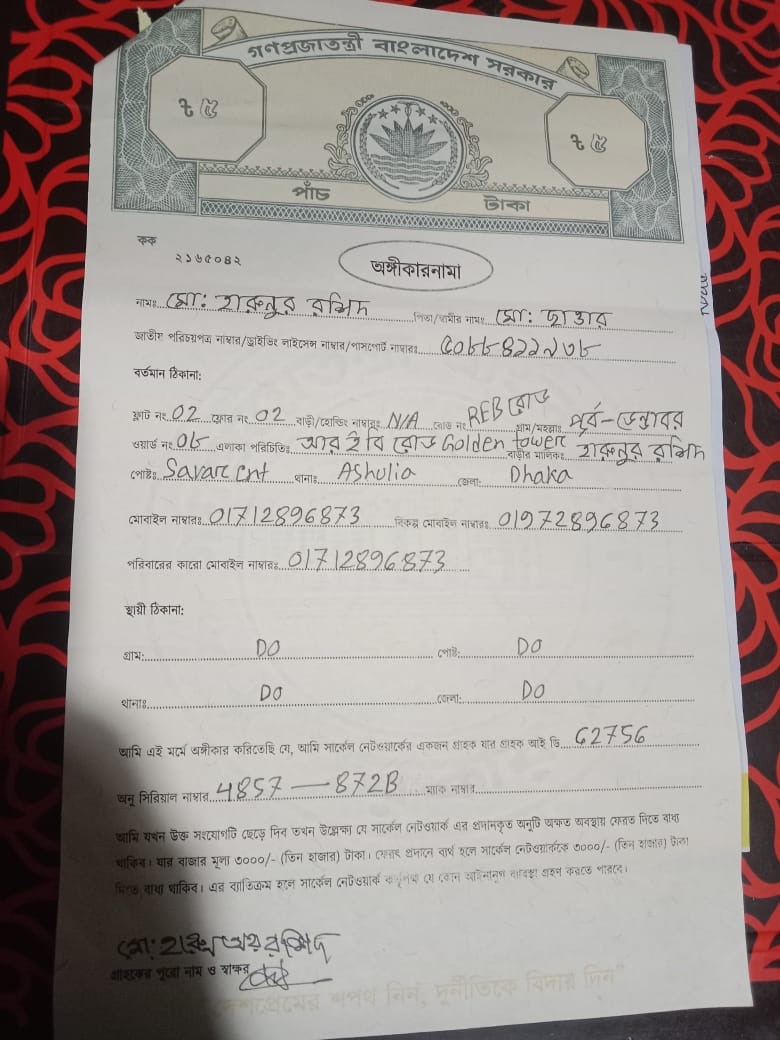 গণপ্রজাতন্ত্রী বাংলাদেশ সরকার
৳ ৫ ৳ ৫
পাঁচ টাকা
কক
২১৬৫০৪২
অঙ্গীকারনামা
নামঃ মো: হারুনুর রশিদ পিতা/স্বামীর নামঃ মো: ছাত্তার
জাতীয় পরিচয়পত্র নাম্বার/ড্রাইভিং লাইসেন্স নাম্বার/পাসপোর্ট নাম্বারঃ
বর্তমান ঠিকানা:
ফ্লাট নং 02 ফ্লোর নং 02 বাড়ী/হোল্ডিং নাম্বারঃ N/A রোড নং REB রোড গ্রাম/মহল্লাঃ পূর্ব-ডেন্ডাবর
ওয়ার্ড নং 06 এলাকা পরিচিতিঃ আর ই বি রোড Golden tower বাড়ীর মালিকঃ হারুনুর রশিদ
পোষ্টঃ Savar cnt থানাঃ Ashulia জেলা: Dhaka
মোবাইল নাম্বারঃ 01712896873 বিকল্প মোবাইল নাম্বারঃ 01972896873
পরিবারের কারো মোবাইল নাম্বারঃ 01712896873
স্থায়ী ঠিকানা:
গ্রাম: DO পোষ্ট: DO
থানাঃ DO জেলা: DO
আমি এই মর্মে অঙ্গীকার করিতেছি যে, আমি সার্কেল নেটওয়ার্কের একজন গ্রাহক যার গ্রাহক আই ডি 62756
অনু সিরিয়াল নাম্বার 4857 — 872B ম্যাক নাম্বার
আমি যখন উক্ত সংযোগটি ছেড়ে দিব তখন উল্লেক্ষ্য যে সার্কেল নেটওয়ার্ক এর প্রদানকৃত অনুটি অক্ষত অবস্থায় ফেরত দিতে বাধ্য
থাকিব। যার বাজার মূল্য ৩০০০/- (তিন হাজার) টাকা। ফেরৎ প্রদানে ব্যর্থ হলে সার্কেল নেটওয়ার্ককে ৩০০০/- (তিন হাজার) টাকা
দিতে বাধ্য থাকিব। এর ব্যতিক্রম হলে সার্কেল নেটওয়ার্ক কর্তৃপক্ষ যে কোন আইনানুগ ব্যবস্থা গ্রহন করতে পারবে।
গ্রাহকের পুরো নাম ও স্বাক্ষর
দেশপ্রেমের শপথ নিন, দুর্নীতিকে বিদায় দিন"